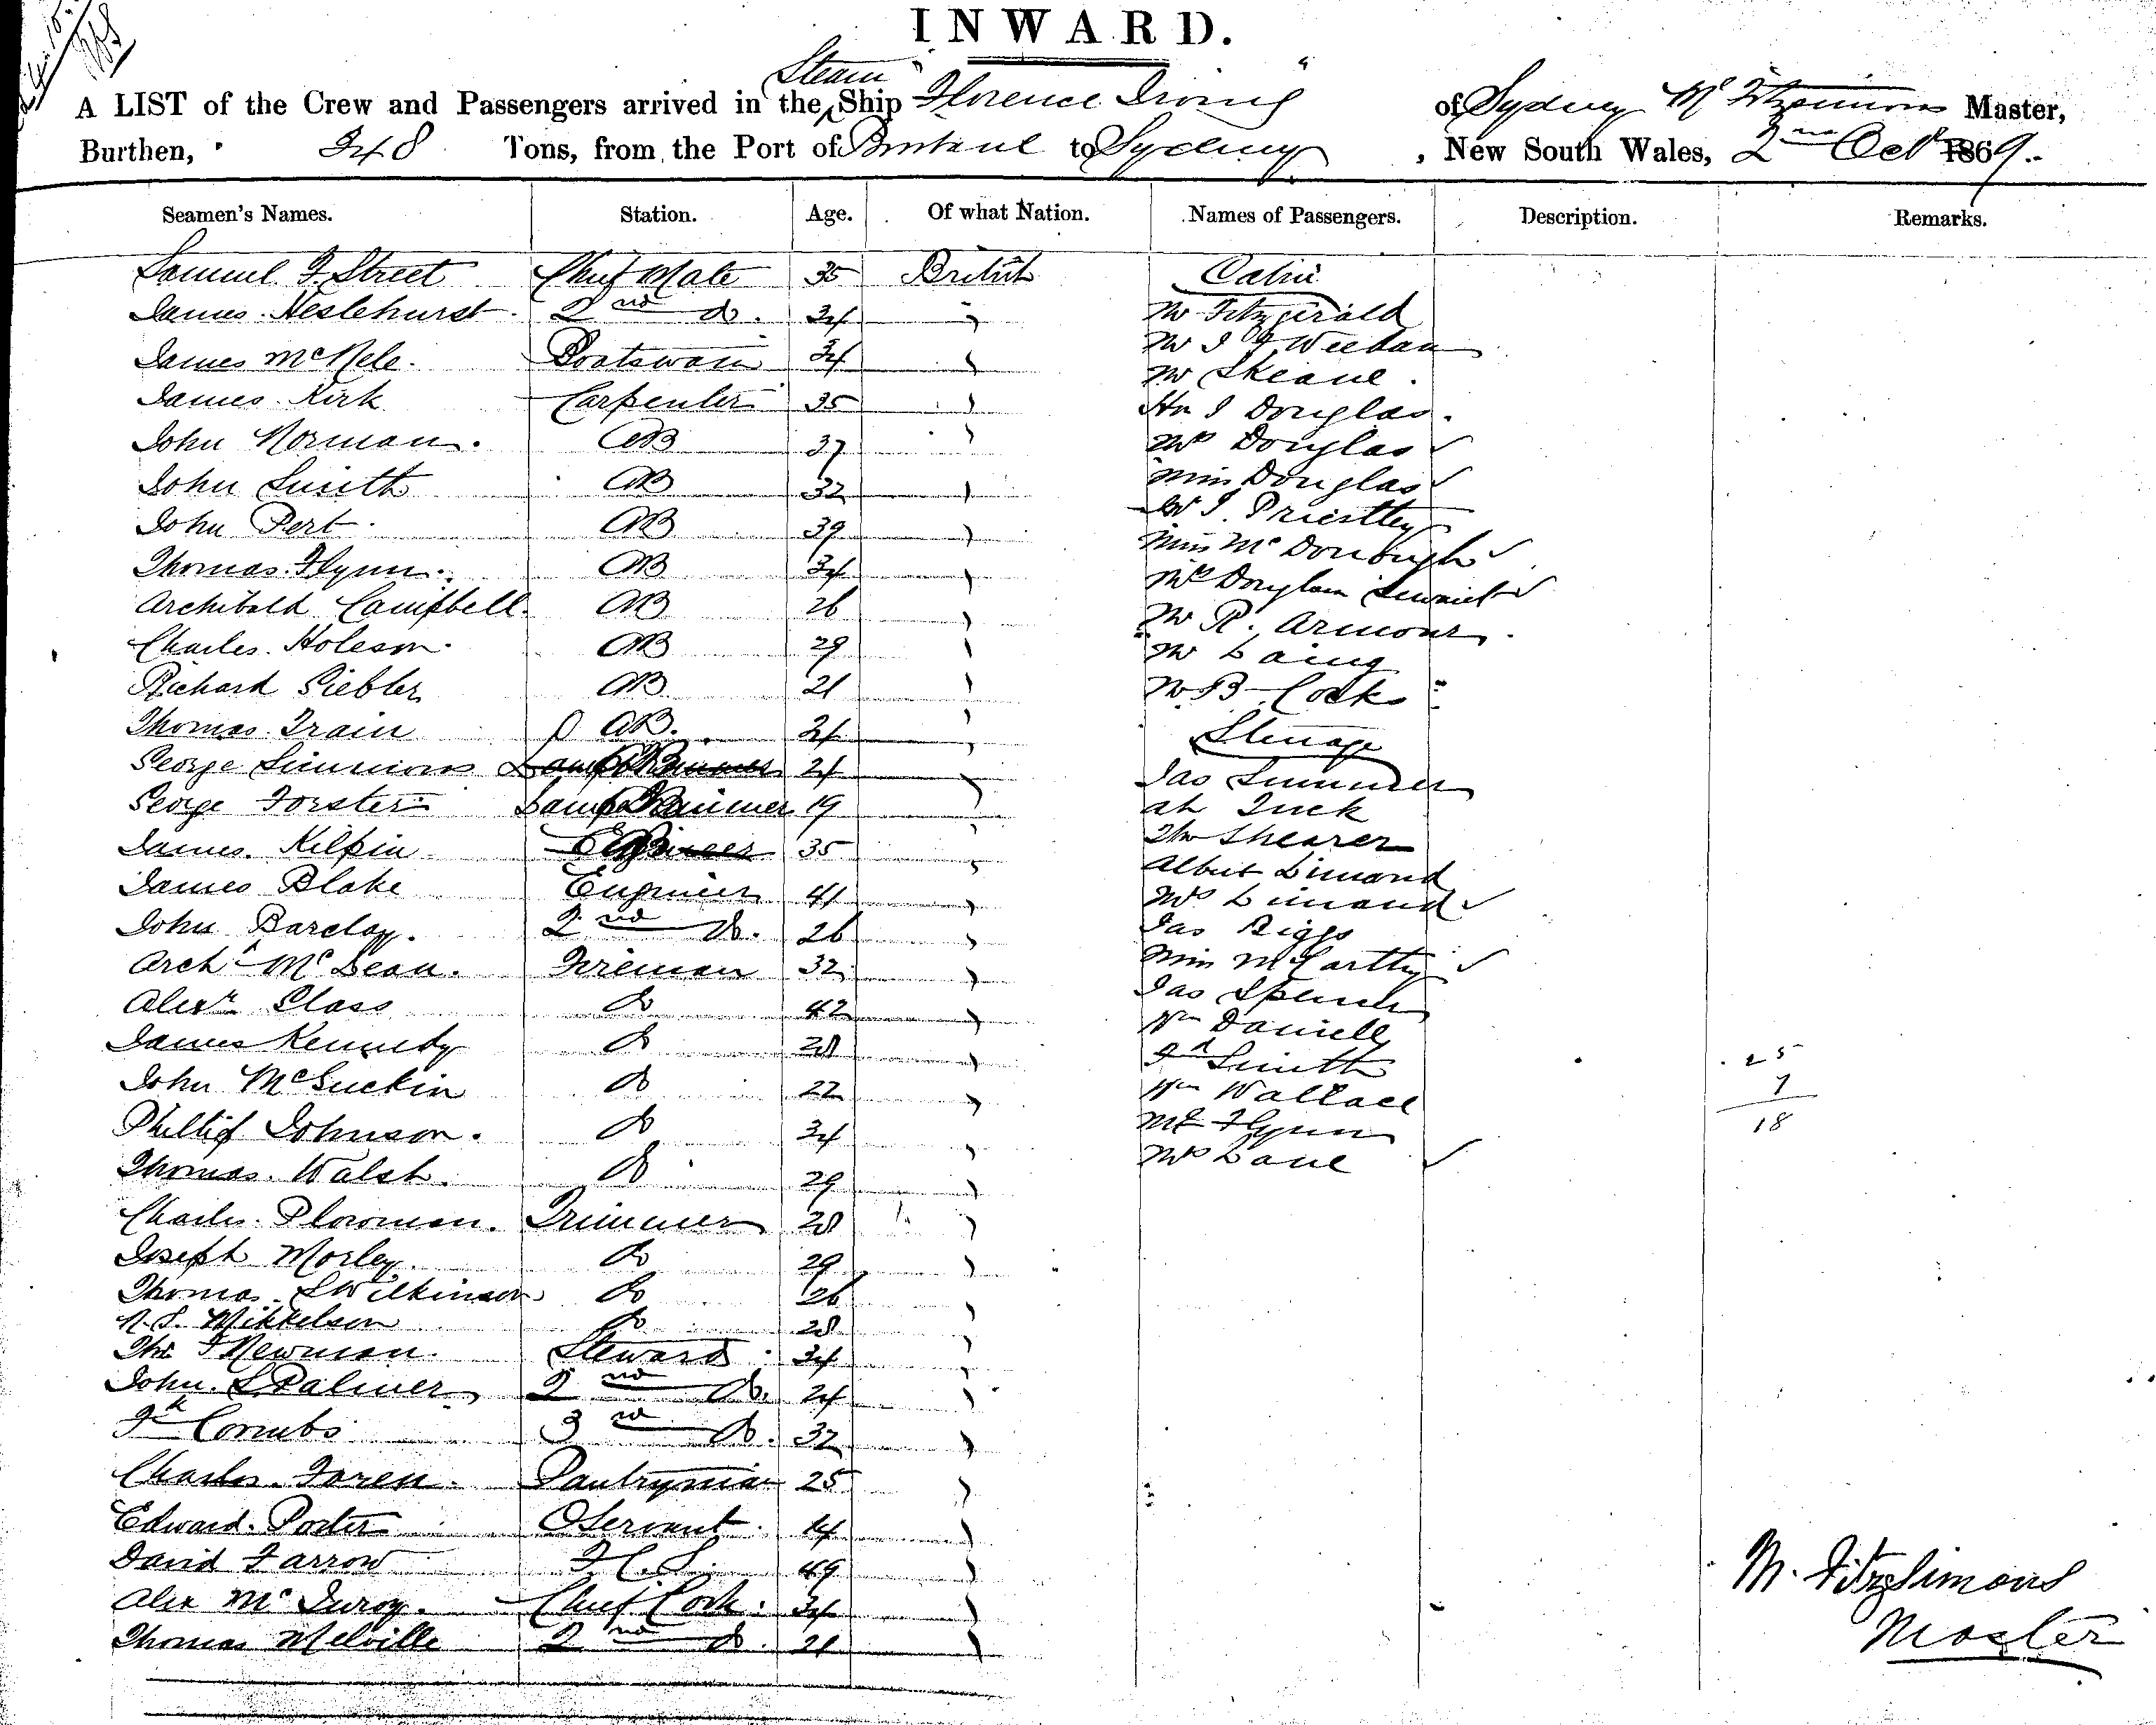 INWARD.
Steam
A LIST of the Crew and Passengers arrived in the Ship "Florence Irving" of Sydney M Fitzsimons Master,
Burthen, 348 Tons, from the Port of Brisbane to Sydney, New South Wales, 2nd Oct 1869.
Seamen's Names. Station. Age. Of what Nation. Names of Passengers. Description. Remarks.
Samuel F. Street Chief Mate 35 British Cabin
James Heslehurst 2nd do. 34 " Mr Fitzgerald
James McNele Boatswain 34 " Mr J
James Kirk Carpenter 35 " Mr Skeane
John Norman AB 37 " Hn J Douglas
John Smith AB 32 " Mrs Douglas
John Pert AB 39 " Miss Douglas
Thomas Flynn AB 34 " J. Priestley
Archibald Campbell AB 26 " Miss McDonough
Charles Holeson AB 29 " Mrs Douglas Servant
Richard Siebler AB 21 " Mr R. Armour
Thomas Train AB. 24 " Mr Laing
George Simmons 24 " Mr B Cock
George Forster Lamp Trimmer 19 " Steerage
James Kilpin 35 " Jas
James Blake Engineer 41 " Ah Tuck
John Barclay 2nd do. 26 " Shearer
Archd McLean Fireman 32 " Albert Limond
Alexr Glass do 42 " Mrs Limond
James Kennedy do 28 " Jas Biggs
John McGuckin do 22 " Miss McCarthy
Phillip Johnson do 34 " Jas Spencer
Thomas Walsh do 29 " Wm Daniell
Charles Plowman Trimmer 28 " Fk Smith
Joseph Morley do 29 " Wm Wallace
Thomas S Wilkinson do 26 " Mt Flynn
N. S. Mikkelson do 28 " Mrs Lane
Thos F Newman Steward 34 "
John S Palmer 2nd do. 24 "
Fk Combs 3rd do. 32 "
Charles Foren Pantryman 25 "
Edward Porter Servant 14 "
David Farrow F. C. S. 49 "
Alex McIvroy Chief Cook 34 "
Thomas Melville 2nd do. 21 "
25
7
18
M. Fitzsimons
Master